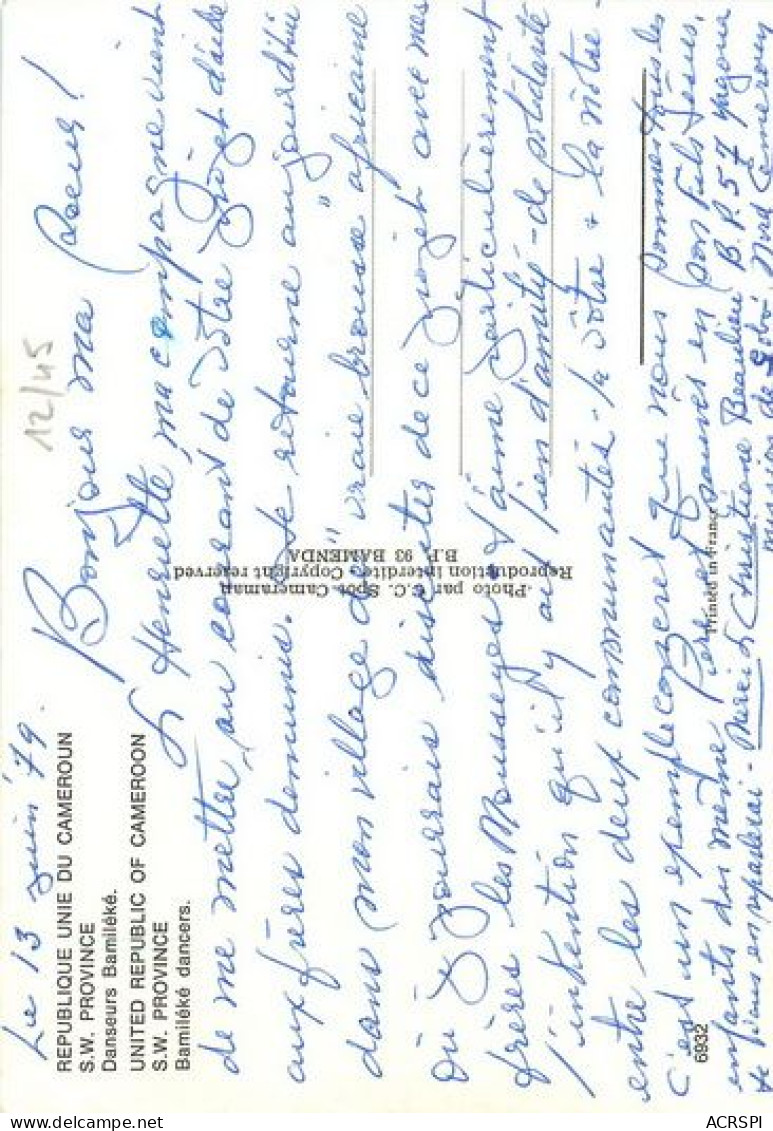 Le 13 juin '79.
REPUBLIQUE UNIE DU CAMEROUN
S.W. PROVINCE
Danseurs Bamiléké.
UNITED REPUBLIC OF CAMEROON
S.W. PROVINCE
Bamiléké dancers.
12/45
Bonjour ma soeur!
Henriette, ma compagne vient
de me mettre au courant de votre projet d'aide
aux frères démunis. Je retourne aujourd'hui
dans mon village de "vraie brousse" africaine
où je pourrais discuter de ce projet avec mes
frères les Mousseyes. J'aime particulièrement
l'intention qu'il y ait lien d'amitié - de solidarité
entre les deux communautés - la vôtre & la nôtre -
C'est un exemple concret que nous sommes tous les
enfants du même Père et sauvés en son Fils Jésus.
Je vous en reparlerai - Merci Christiane Beaulieu B.P. 57 Yagoua
mission de Gobo Nord Cameroun
Photo par C.C. Spot Cameraman
Reproduction interdite, Copyright reserved
B.P. 93 BAMENDA
Printed in France
6932
ACRSPI